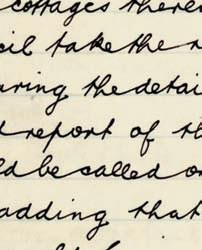 cottages there
cil take the
uring the detai
d report of th
ld be called o
adding that